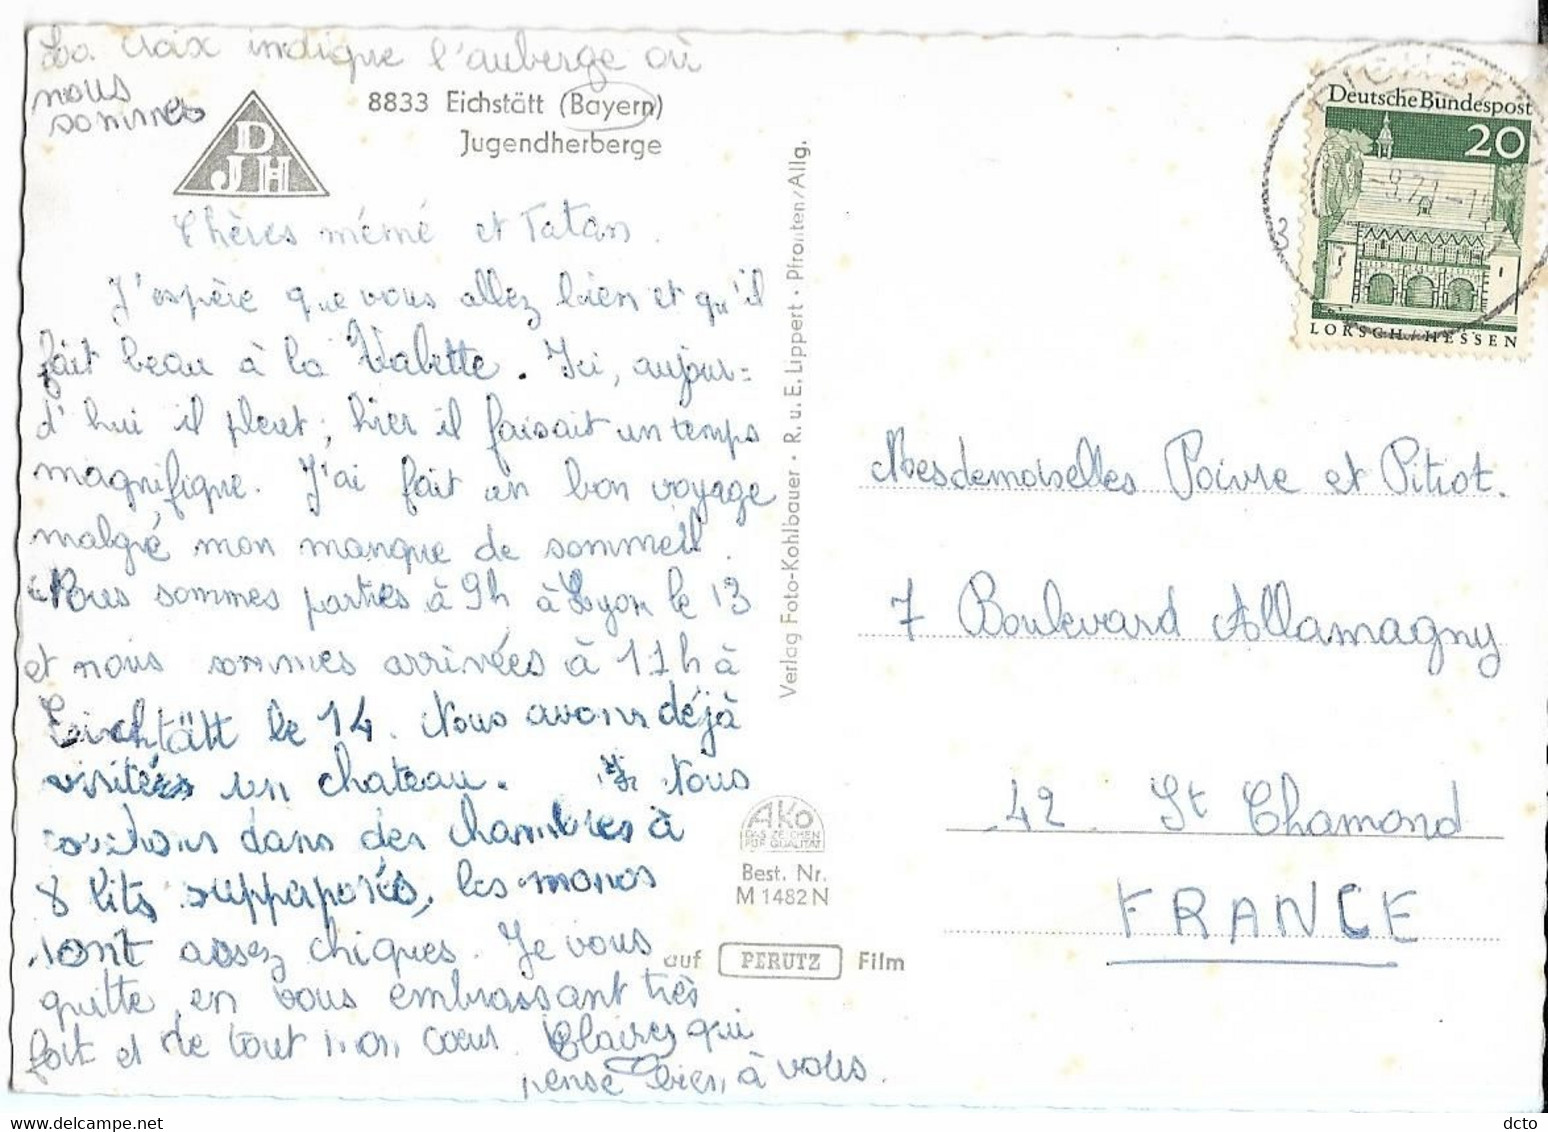 La croix indique l'auberge où
nous
sommes
DJH
8833 Eichstätt (Bayern)
Jugendherberge
Chères mémé et Tatan.
J'espère que vous allez bien et qu'il
fait beau à la Valette. Ici, aujour=
d'hui il pleut; hier il faisait un temps
magnifique. J'ai fait un bon voyage
malgré mon manque de sommeil.
Nous sommes parties à 9h à Lyon le 13
et nous sommes arrivées à 11h à
Eichtätt le 14. Nous avons déjà
visitées un chateau. Nous
couchons dans des chambres à
8 lits supperposés, les monos
sont assez chiques. Je vous
quitte en vous embrassant très
fort et de tout mon coeur. Claire qui
pense bien à vous.
Verlag Foto-Kohlbauer · R. u. E. Lippert · Pfronten/Allg.
AKO
DAS ZEICHEN
FÜR QUALITÄT
Best. Nr.
M 1482 N
auf PERUTZ Film
Deutsche Bundespost
20
LORSCH/HESSEN
Mesdemoiselles Poivre et Pitiot.
7 Boulevard Allamagny
42 St Chamond
FRANCE